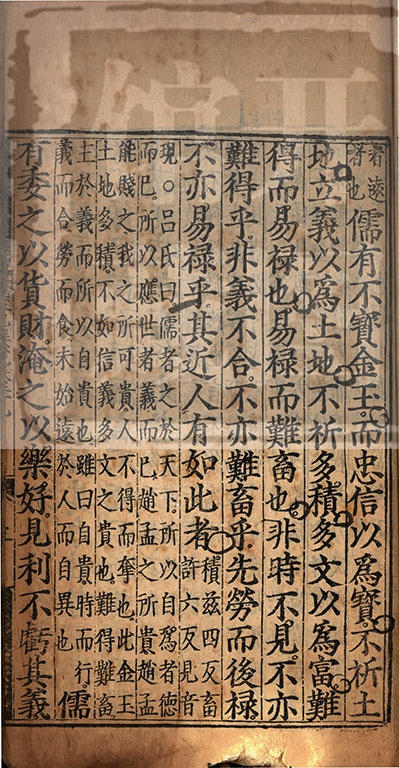 者遠
者也
儒有不寶金玉而忠信以爲寶不祈土
地立義以爲土地不祈多積多文以爲富難
得而易祿也易祿而難畜也非時不見不亦
難得乎非義不合不亦難畜乎先勞而後祿
不亦易祿乎其近人有如此者
積茲四反畜
許六反見音
現○呂氏曰儒者之於天下所以自爲者德
而已所以應世者義而已趙孟之所貴趙孟
能賤之我之所可貴人不得而奪也此金玉
土地多積不如信義多文之貴也難得難畜
主於義而所以自貴也雖曰自貴時而行
義而合勞而食未始遠於人而自異也
儒
有委之以貨財淹之以樂好見利不虧其義